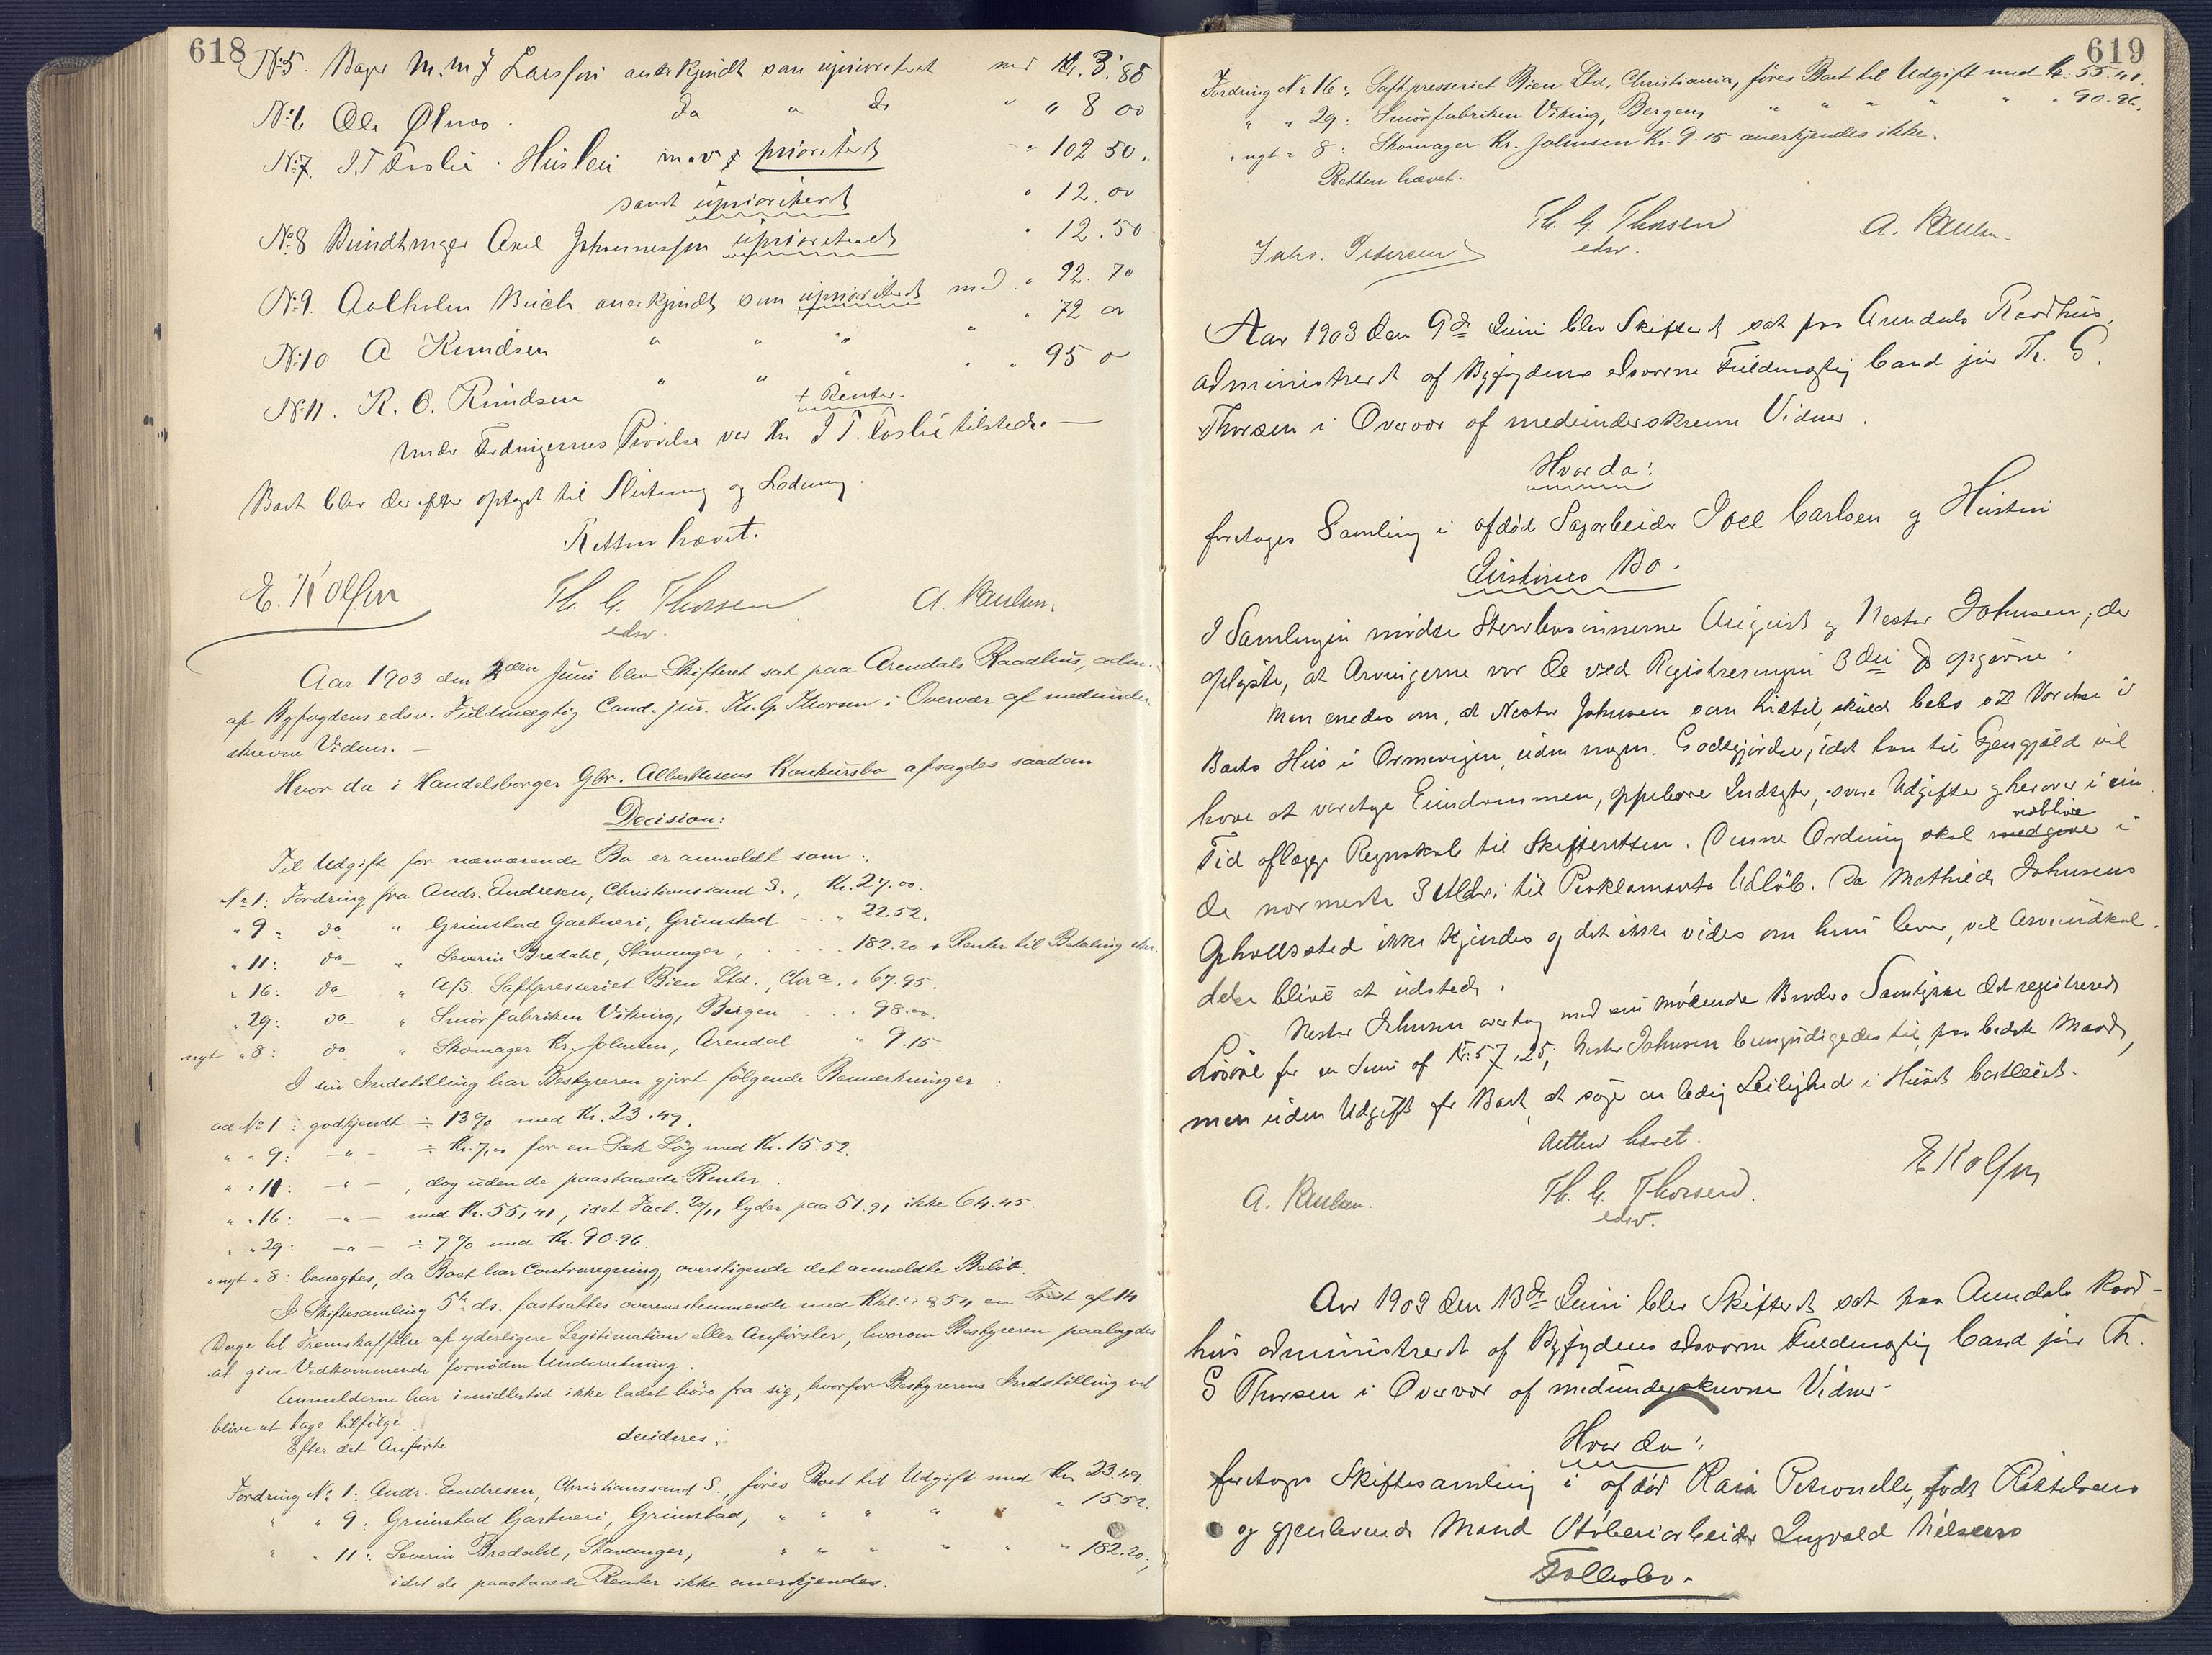 618
No 5. Bager M. M. J Larssen anerkjendt som uprioriteret med Kr. 3.85
No 6 Ole Ølnes . do " do " " 8 00
No 7. I. T. Toslie . Husleie prioriteret " 102 50.
samt uprioriteret " 12.00
No 8 Axel Johannessen uprioriteret " 12.50
No 9. Buch anerkjendt som uprioriteret med . " 92.70
No 10 A Knudsen " " " " " 72 00
No 11. K. O. Knudsen " " " " " 95 0
+ Renter.
Under Fordringernes Prøvelse var Hr I T. Toslie tilstede. —
Boet blev derefter optaget til Slutning og Lodning.
Retten hævet.
E. Rolfsen Th. G. Thorsen A. Paulsen.
edsv.
Aar 1903 den 2den Juni blev Skifteret sat paa Arendals Raadhus, adm.
af Byfogdens edsv. Fuldmægtig Cand. jur. Th. G. Thorsen i Overvær af medunder
skrevne Vidner. —
Hvor da i Handelsborger Gbr. Albertsens Konkursbo afsagdes saadan
Decision:
Til Udgift for nærværende Bo er anmeldt som:
No 1: Fordring fra Andr. Endresen, Christianssand S., Kr. 27.00.
" 9: do " Grimstad Gartneri, Grimstad - . . " 22.52.
" 11: do " Severin Bredahl, Stavanger, . . . 182.20 + Renter til Betaling sker.
" 16: do " A/S. Saftpresseriet Bien Ltd., Chra. . " 67.95.
" 29: do " Smörfabriken Viking, Bergen . . . 98.00.
nyt " 8: do " Skomager Kr. Johnsen, Arendal " 9.15
I sin Indstilling har Bestyreren gjort følgende Bemærkninger:
ad No 1: godkjendt ÷ 13% med Kr. 23.49.
" " 9: —"— ÷ Kr. 7,00 for en Sæk Løg med Kr. 15.52.
" " 11: —"—, dog uden de paastaaede Renter.
" " 16: —"— med Kr. 55,41, idet Fact. 20/11 lyder paa 51.91 ikke 64.45.
" " 29: —"— ÷ 7% med Kr. 90.96.
" nyt " 8: benegtes, da Boet har Contraregning, overstigende det anmeldte Beløb.
I Skiftesamling 5te ds. fastsattes overensstemmende med Kkl. § 54 en Frist af 14
Dage til Fremskaffelse af yderligere Legitimation eller Anførsler, hvorom Bestyreren paalagdes
at give Vedkommende fornøden Underretning.
Anmelderne har imidlertid ikke ladet høre fra sig, hvorfor Bestyrerens Indstilling vil
blive at tage tilfølge.
Efter det Anførte decideres:
Fordring No 1: Andr. Endresen, Christianssand S., føres Boet til Udgift med Kr. 23.49.
" " 9: Grimstad Gartneri, Grimstad, " " " " " " 15.52.
" " 11: Severin Bredahl, Stavanger, " " " " " " 182.20;
idet de paastaaede Renter ikke anerkjendes.
619
Fordring No 16: Saftpresseriet Bien Ltd, Christiania, føres Boet til Udgift med Kr. 55.41.
" " 29: Smörfabriken Viking, Bergen, " " " " " " 90.96.
" nyt " 8: Skomager Kr. Johnsen Kr. 9.15 anerkjendes ikke.
Retten hævet.
Johs. Pedersen Th. G. Thorsen A. Paulsen.
edsv.
Aar 1903 den 9de Juni blev Skifteret sat paa Arendals Raadhus,
administreret af Byfogdens edsvorne Fuldmægtig Cand jur Th. G.
Thorsen i Overvær af medunderskrevne Vidner.
Hvor da:
foretoges Samling i afdød Sagarbeider Joel Carlsen og Hustru
Bo.
I Samlingen mødte Stervbosønnerne August og Nestor Johnsen, der
oplyste, at Arvingerne var de ved Registreringen 3die ds opgivne.
Man enedes om, at Nestor Johnsen som hidtil skulde bebo sit Værelse i
Boets Hus i uden nogen Godtgjørelse, idet han til Gjengjæld vil
have at varetage Eiendommen, oppebære Indtægter, svare Udgifter og herover i sin
Tid aflægge Regnskab til Skifteretten. Denne Ordning skal vedblive i
de nærmeste 3 Mdr. til Proklamaets Udløb. Da Mathilde Johnsens
Opholdssted ikke kjendes og det ikke vides om hun lever, vil Arveindkal-
delse blive at udstede.
Nestor Johnsen overtog med sin mødende Broders Samtykke det registrerede
Løsøre for en Sum af Kr. 57,25; Nestor Johnsen bemyndigedes til, paa bedste Maade,
men uden Udgift for Boet, at søge en ledig Leilighed i Huset bortleiet.
Retten hævet.
A. Paulsen. Th. G. Thorsen. E Rolfsen
edsv.
Aar 1903 den 13de Juni blev Skifteret sat paa Arendals Raad-
hus administreret af Byfogdens edsvorne Fuldmægtig Cand jur Th.
G Thorsen i Overvær af medunderskrevne Vidner.
Hvor da:
foretoges Skiftesamling i afdød Petronelle, født
og gjenlevende Mand Støberiarbeider Ingvald Nielsens
Fællesbo.